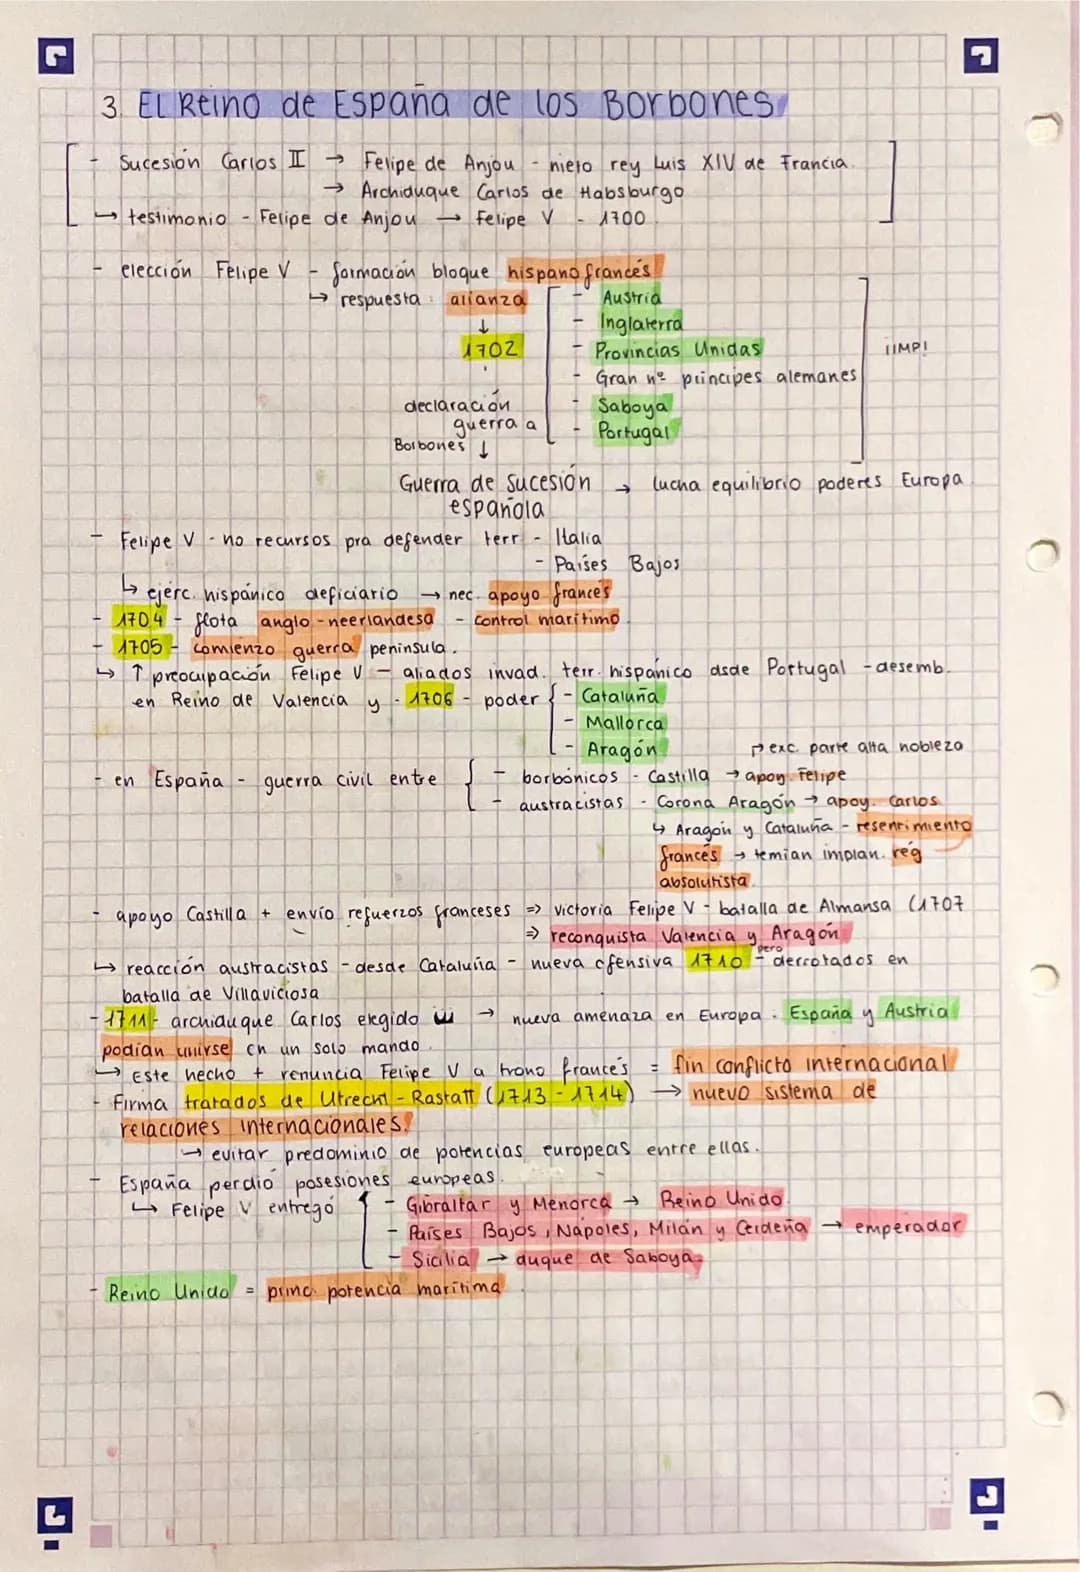 3. El Reino de España de los Borbones
- Sucesión Carlos II → Felipe de Anjou - nieto rey Luis XIV de Francia.
→ Archiduque Carlos de Habsburgo
↳ testimonio - Felipe de Anjou → Felipe V - 1700.
- elección Felipe V - formación bloque hispano francés
↳ respuesta: alianza - Austria
↓ - Inglaterra
1702 - Provincias Unidas ¡IMP!
- Gran nº príncipes alemanes
declaración - Saboya
guerra a - Portugal
Borbones ↓
Guerra de Sucesión → lucha equilibrio poderes Europa.
española
- Felipe V - no recursos pra defender terr - Italia
- Países Bajos
↳ ejérc. hispánico deficiario → nec. apoyo francés
- 1704 - flota anglo-neerlandesa - control marítimo.
- 1705 - comienzo guerra península.
↳ ↑ preocupación Felipe V - aliados invad. terr. hispánico dsde Portugal - desemb.
en Reino de Valencia y - 1706 - poder { - Cataluña
- Mallorca
- Aragón
↱ exc. parte alta nobleza
- en España - guerra civil entre { - borbónicos - Castilla → apoy. Felipe
- austracistas - Corona Aragón → apoy. Carlos
↳ Aragón y Cataluña - resentimiento
francés → temían implan. rég
absolutista.
- apoyo Castilla + envío refuerzos franceses => victoria Felipe V - batalla de Almansa (1707
=> reconquista Valencia y Aragón
↳ reacción austracistas - desde Cataluña - nueva ofensiva 1710 - pero derrotados en
batalla de Villaviciosa
- 1711 - archiduque Carlos elegido → nueva amenaza en Europa: España y Austria
podían unirse en un solo mando.
↳ Este hecho + renuncia Felipe V a trono francés = fin conflicto internacional
- Firma tratados de Utrecht - Rastatt (1713 - 1714) → nuevo sistema de
relaciones internacionales.
→ evitar predominio de potencias europeas entre ellas.
- España perdió posesiones europeas.
↳ Felipe V entregó { - Gibraltar y Menorca → Reino Unido.
- Países Bajos, Nápoles, Milán y Cerdeña → emperador
- Sicilia → duque de Saboya.
- Reino Unido = princ. potencia marítima.